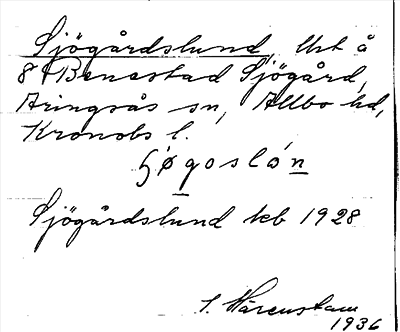 Sjögårdslund, Ust å
8 Benestad Sjögård,
Aringsås sn, Allbo hd,
Kronobs l.
Sjögårdslund keb 1928
S. Wärenstam
1936